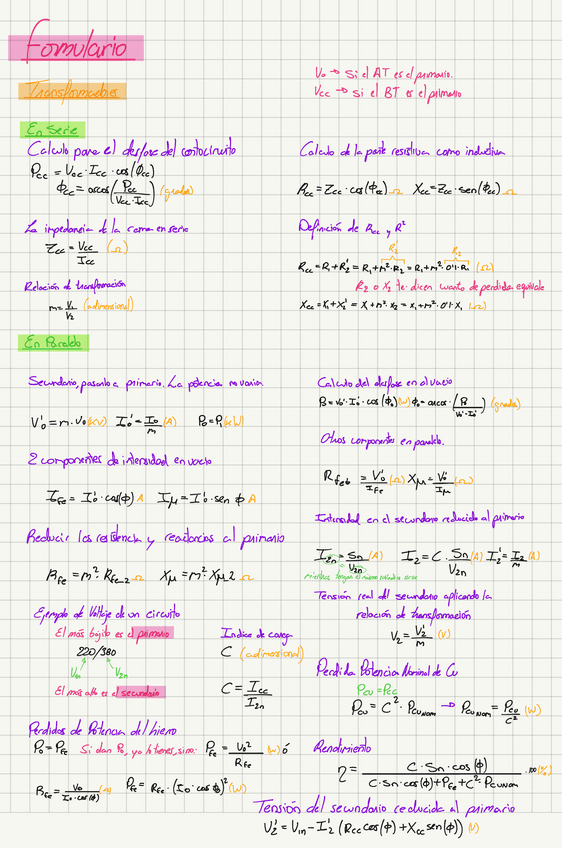 Formulario
V₀ → Si el AT es el primario.
Vcc → Si el BT es el primario
Transformadores
En Serie
Calculo para el desfase del cortocircuito
Pcc = Vcc · Icc · cos(ϕcc)
ϕcc = arcos(Pcc / Vcc·Icc) (grados)
Calculo de la parte resistiva como inductiva
Rcc = Zcc · cos(ϕcc) Ω Xcc = Zcc · sen(ϕcc) Ω
La impedancia de la rama en serie
Zcc = Vcc / Icc (Ω)
Definición de Rcc y R²
R₂' R₂
Rcc = R₁ + R₂' = R₁ + m²·R₂ = R₁ + m²·0'1·R₁ (Ω)
R₂ o X₂ te dicen cuanto de perdida equivale
Xcc = X₁ + X₂' = X₁ + m²·X₂ = X₁ + m²·0'1·X₁ (Ω)
Relación de transformación
m = V₁ / V₂ (adimensional)
En Paralelo
Secundario, pasarlo a primario. La potencia no varia
V'₀ = m · V₀ (kV) I₀' = I₀ / m (A) P₀ = P₀' (kW)
Calculo del desfase en el vacio
P₀ = V₀' · I₀' · cos(ϕ₀) (W) ϕ₀ = arcos · (P₀ / V₀'·I₀') (grados)
Otros componentes en paralelo.
2 componentes de intensidad en vacio
I Fe = I₀' · cos(ϕ) A Iμ = I₀' · sen ϕ A
R fe = V₀' / I Fe (Ω) Xμ = V₀' / Iμ (Ω)
Reducir las resistencia y reactancias al primario
R Fe = m² · R Fe-2 Ω Xμ = m² · Xμ2 Ω
Intensidad en el secundario reducida al primario
I₂n = Sn / V₂n (A) I₂ = C · Sn / V₂n (A) I₂' = I₂ / m (A)
mientras tengan el mismo
Tensión real del secundario aplicando la
relación de transformación
V₂ = V₂' / m (V)
Ejemplo de Voltaje de un circuito
El más bajito es el primario
220/380
V₁n V₂n
El más alto es el secundario
Indice de carga
C (adimensional)
C = Icc / I₂n
Perdida Potencia Nominal de Cu
Pcu = Pcc
Pcu = C² · Pcu Nom → Pcu Nom = Pcu / C² (W)
Perdidas de Potencia del hierro
P₀ = P Fe Si dan P₀, ya lo tienes, sino: P Fe = V₀² / R Fe (W) ó
R Fe = V₀ / I₀·cos(ϕ) (Ω) P Fe = R Fe · (I₀ · cos ϕ)² (W)
Rendimiento
η = C · Sn · cos(ϕ) / C · Sn · cos(ϕ) + P Fe + C² · Pcu Nom · 100 (%)
Tensión del secundario reducida al primario
V₂' = V₁n − I₂' (Rcc cos(ϕ) + Xcc sen(ϕ)) (V)